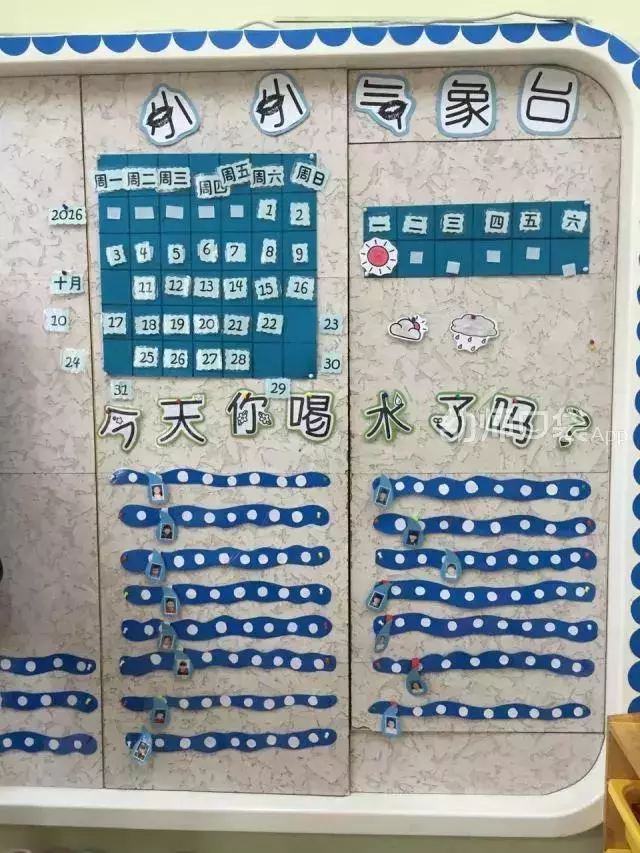 小小气象台
周一 周二 周三 周四 周五 周六 周日
2016 1 2
一 二 三 四 五 六
3 4 5 6 7 8 9
十月 11 12 13 14 15 16
10 17 18 19 20 21 22 23
24 25 26 27 28 30
31 29
今天你喝水了吗?
幼师口袋App